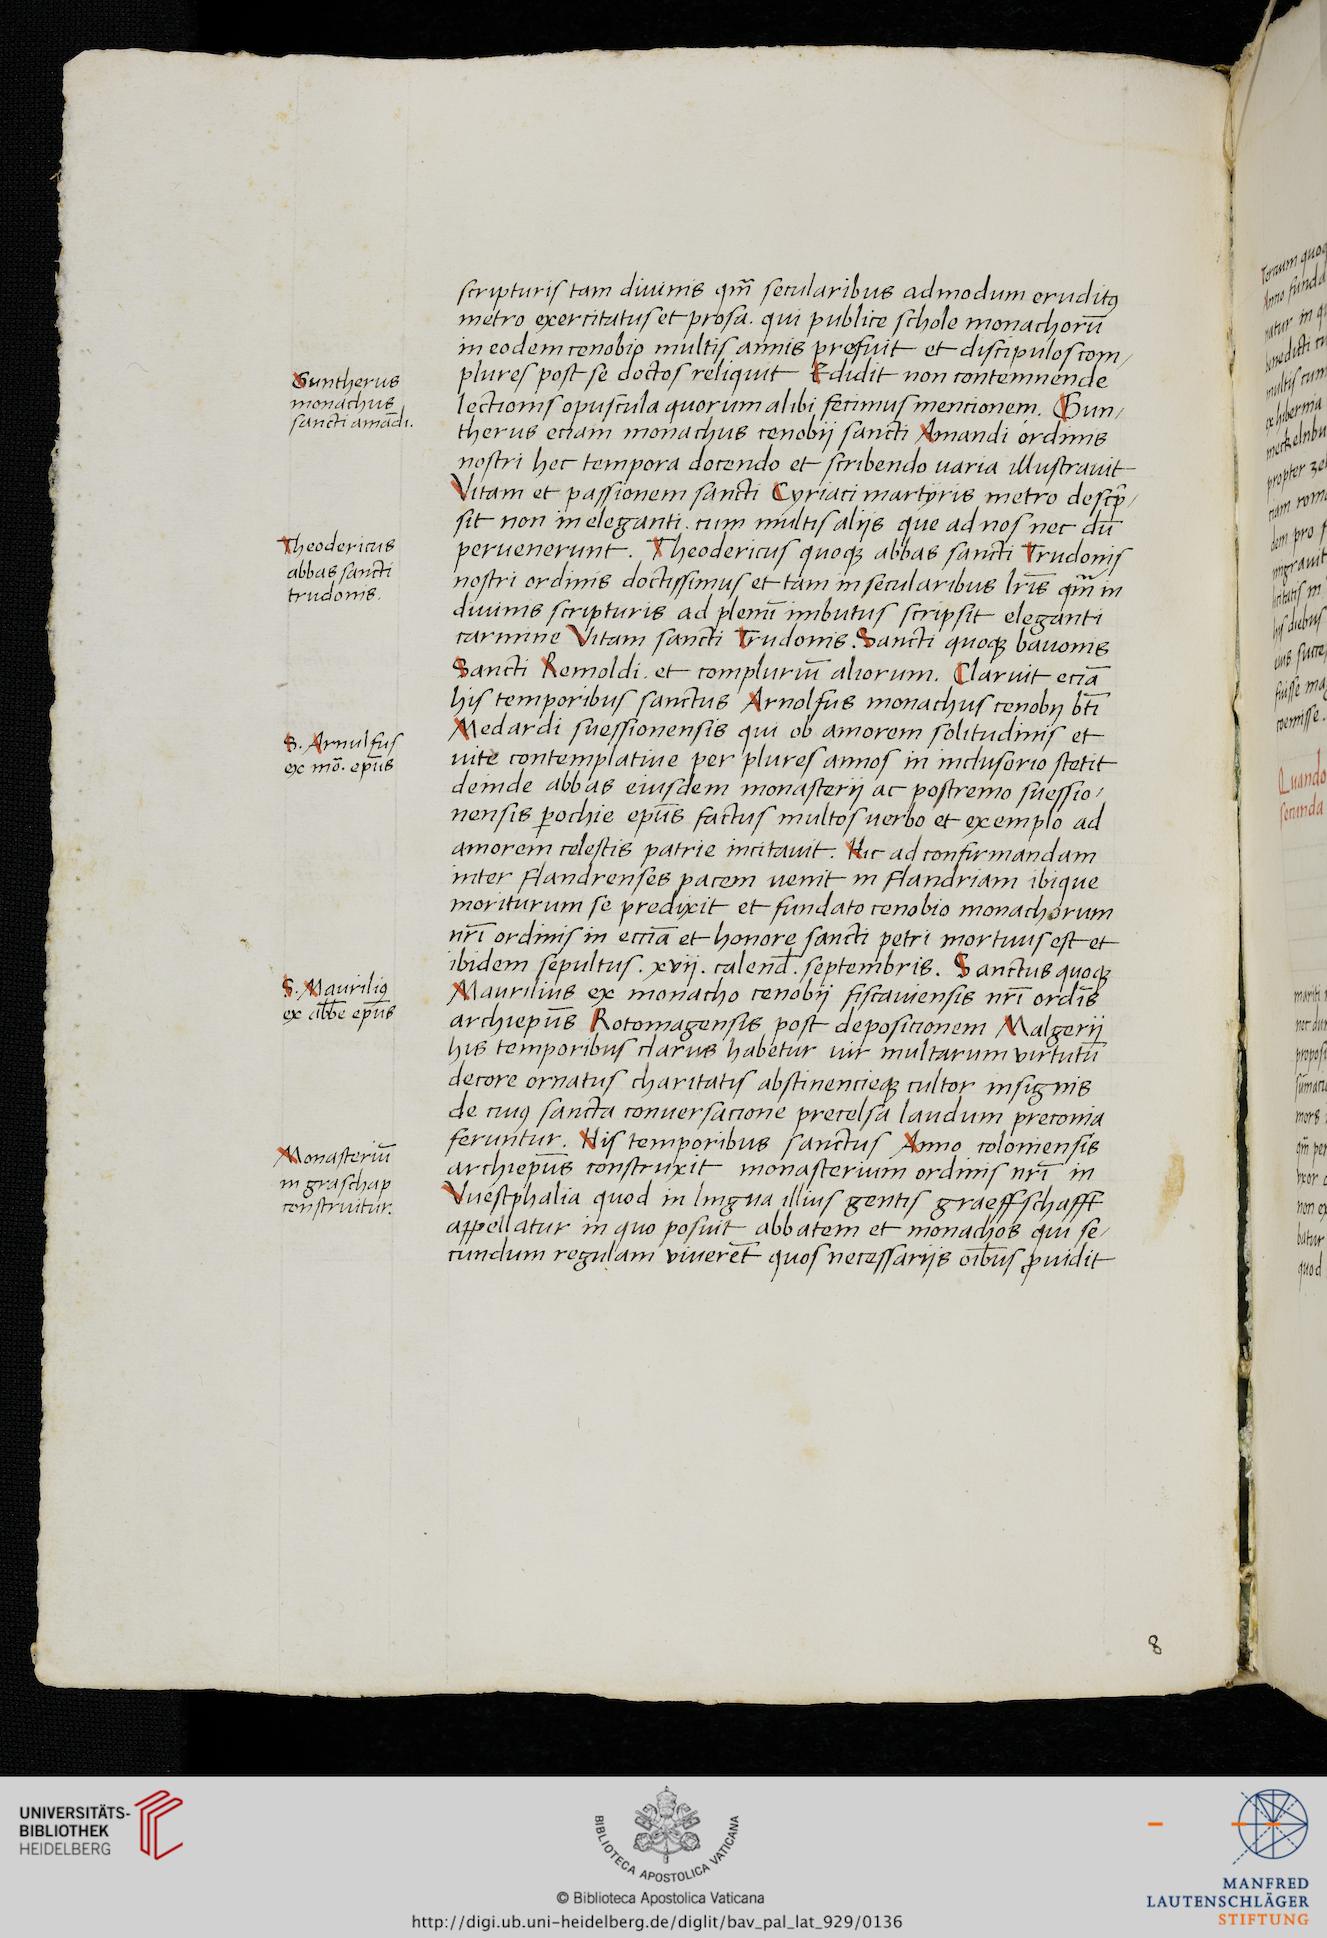 scripturis tam diuinis qm̄ secularibus admodum eruditꝯ
metro exercitatus et prosa. qui publice schole monachorū
in eodem cenobio multis annis prefuit et discipulos com/
plures post se doctos reliquit Edidit non contemnende
lectionis opuscula quorum alibi fecimus mencionem. Gun/
therus eciam monachus cenobij sancti Amandi ordinis
nostri hec tempora docendo et scribendo uaria illustrauit
Vitam et passionem sancti Cyriaci martÿris metro descp̄/
sit non ineleganti. cum multis alijs que ad nos nec dū
peruenerunt. Theodericus quoqꝫ abbas sancti Trudonis
nostri ordinis doctissimus et tam in secularibus lrīs qm̄ in
diuinis scripturis ad plenū imbutus scripsit eleganti
carmine Vitam sancti Trudonis. Sancti quoqꝫ bavonis
Sancti Remoldi. et compluriū aliorum. Claruit eciā
his temporibus sanctus Arnolfus monachus cenobij btī
Medardi suessionensis qui ob amorem solitudinis et
uite contemplatiue per plures annos in inclusorio stetit
deinde abbas eiusdem monasterij ac postremo suessio/
nensis ꝑochie epūs factus multos uerbo et exemplo ad
amorem celestis patrie incitauit. Hic ad confirmandam
inter flandrenses pacem uenit in flandriam ibique
moriturum se predixit et fundato cenobio monachorum
nrī ordinis in eccīa et honore sancti petri mortuus est et
ibidem sepultus. xvij. calend̄. septembris. Sanctus quoqꝫ
Maurilius ex monacho cenobij fiscaniensis nrī ordīs
archiepūs Rotomagensis post deposicionem Malgerij
his temporibus clarus habetur uir multarum virtutū
decore ornatus charitatis abstinencieqꝫ cultor insignis
de cuiꝯ sancta conuersacione precelsa laudum preconia
feruntur. His temporibus sanctus Anno coloniensis
archiepūs construxit monasterium ordinis nrī in
Vuestphalia quod in lingua illius gentis graeffschafft
appellatur in quo posuit abbatem et monachos qui se/
cundum regulam viuerēt quos necessarijs oībus ꝓuidit
Guntherus
monachus
sancti amādi.
Theodericus
abbas sancti
trudonis.
S. Arnulfus
ex mō. epūs
S. Mauriliꝯ
ex abb̄e epūs
Monasteriū
in graschap
construitur.
8
Quando
secunda
UNIVERSITÄTS-
BIBLIOTHEK
HEIDELBERG
BIBLIOTECA APOSTOLICA VATICANA
© Biblioteca Apostolica Vaticana
http://digi.ub.uni-heidelberg.de/diglit/bav_pal_lat_929/0136
MANFRED
LAUTENSCHLÄGER
STIFTUNG